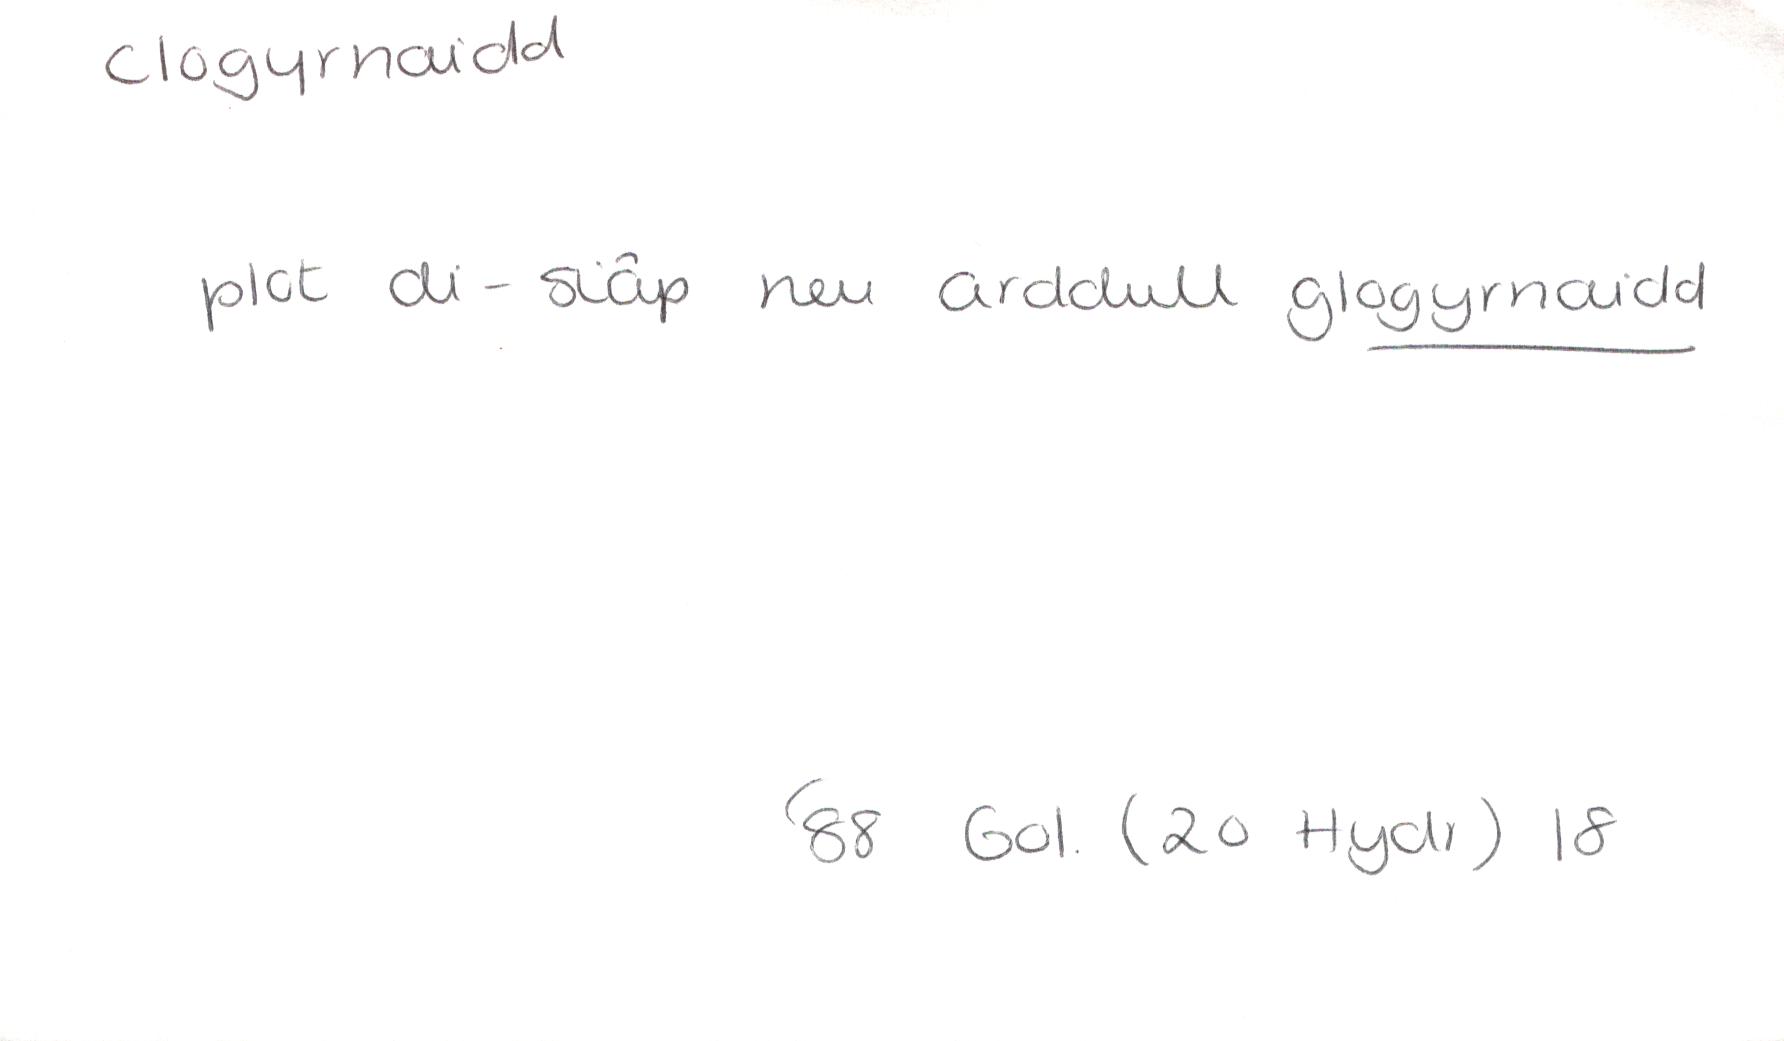 clogyrnaidd
plot di-siâp neu arddull glogyrnaidd
'88 Gol. (20 Hydr) 18